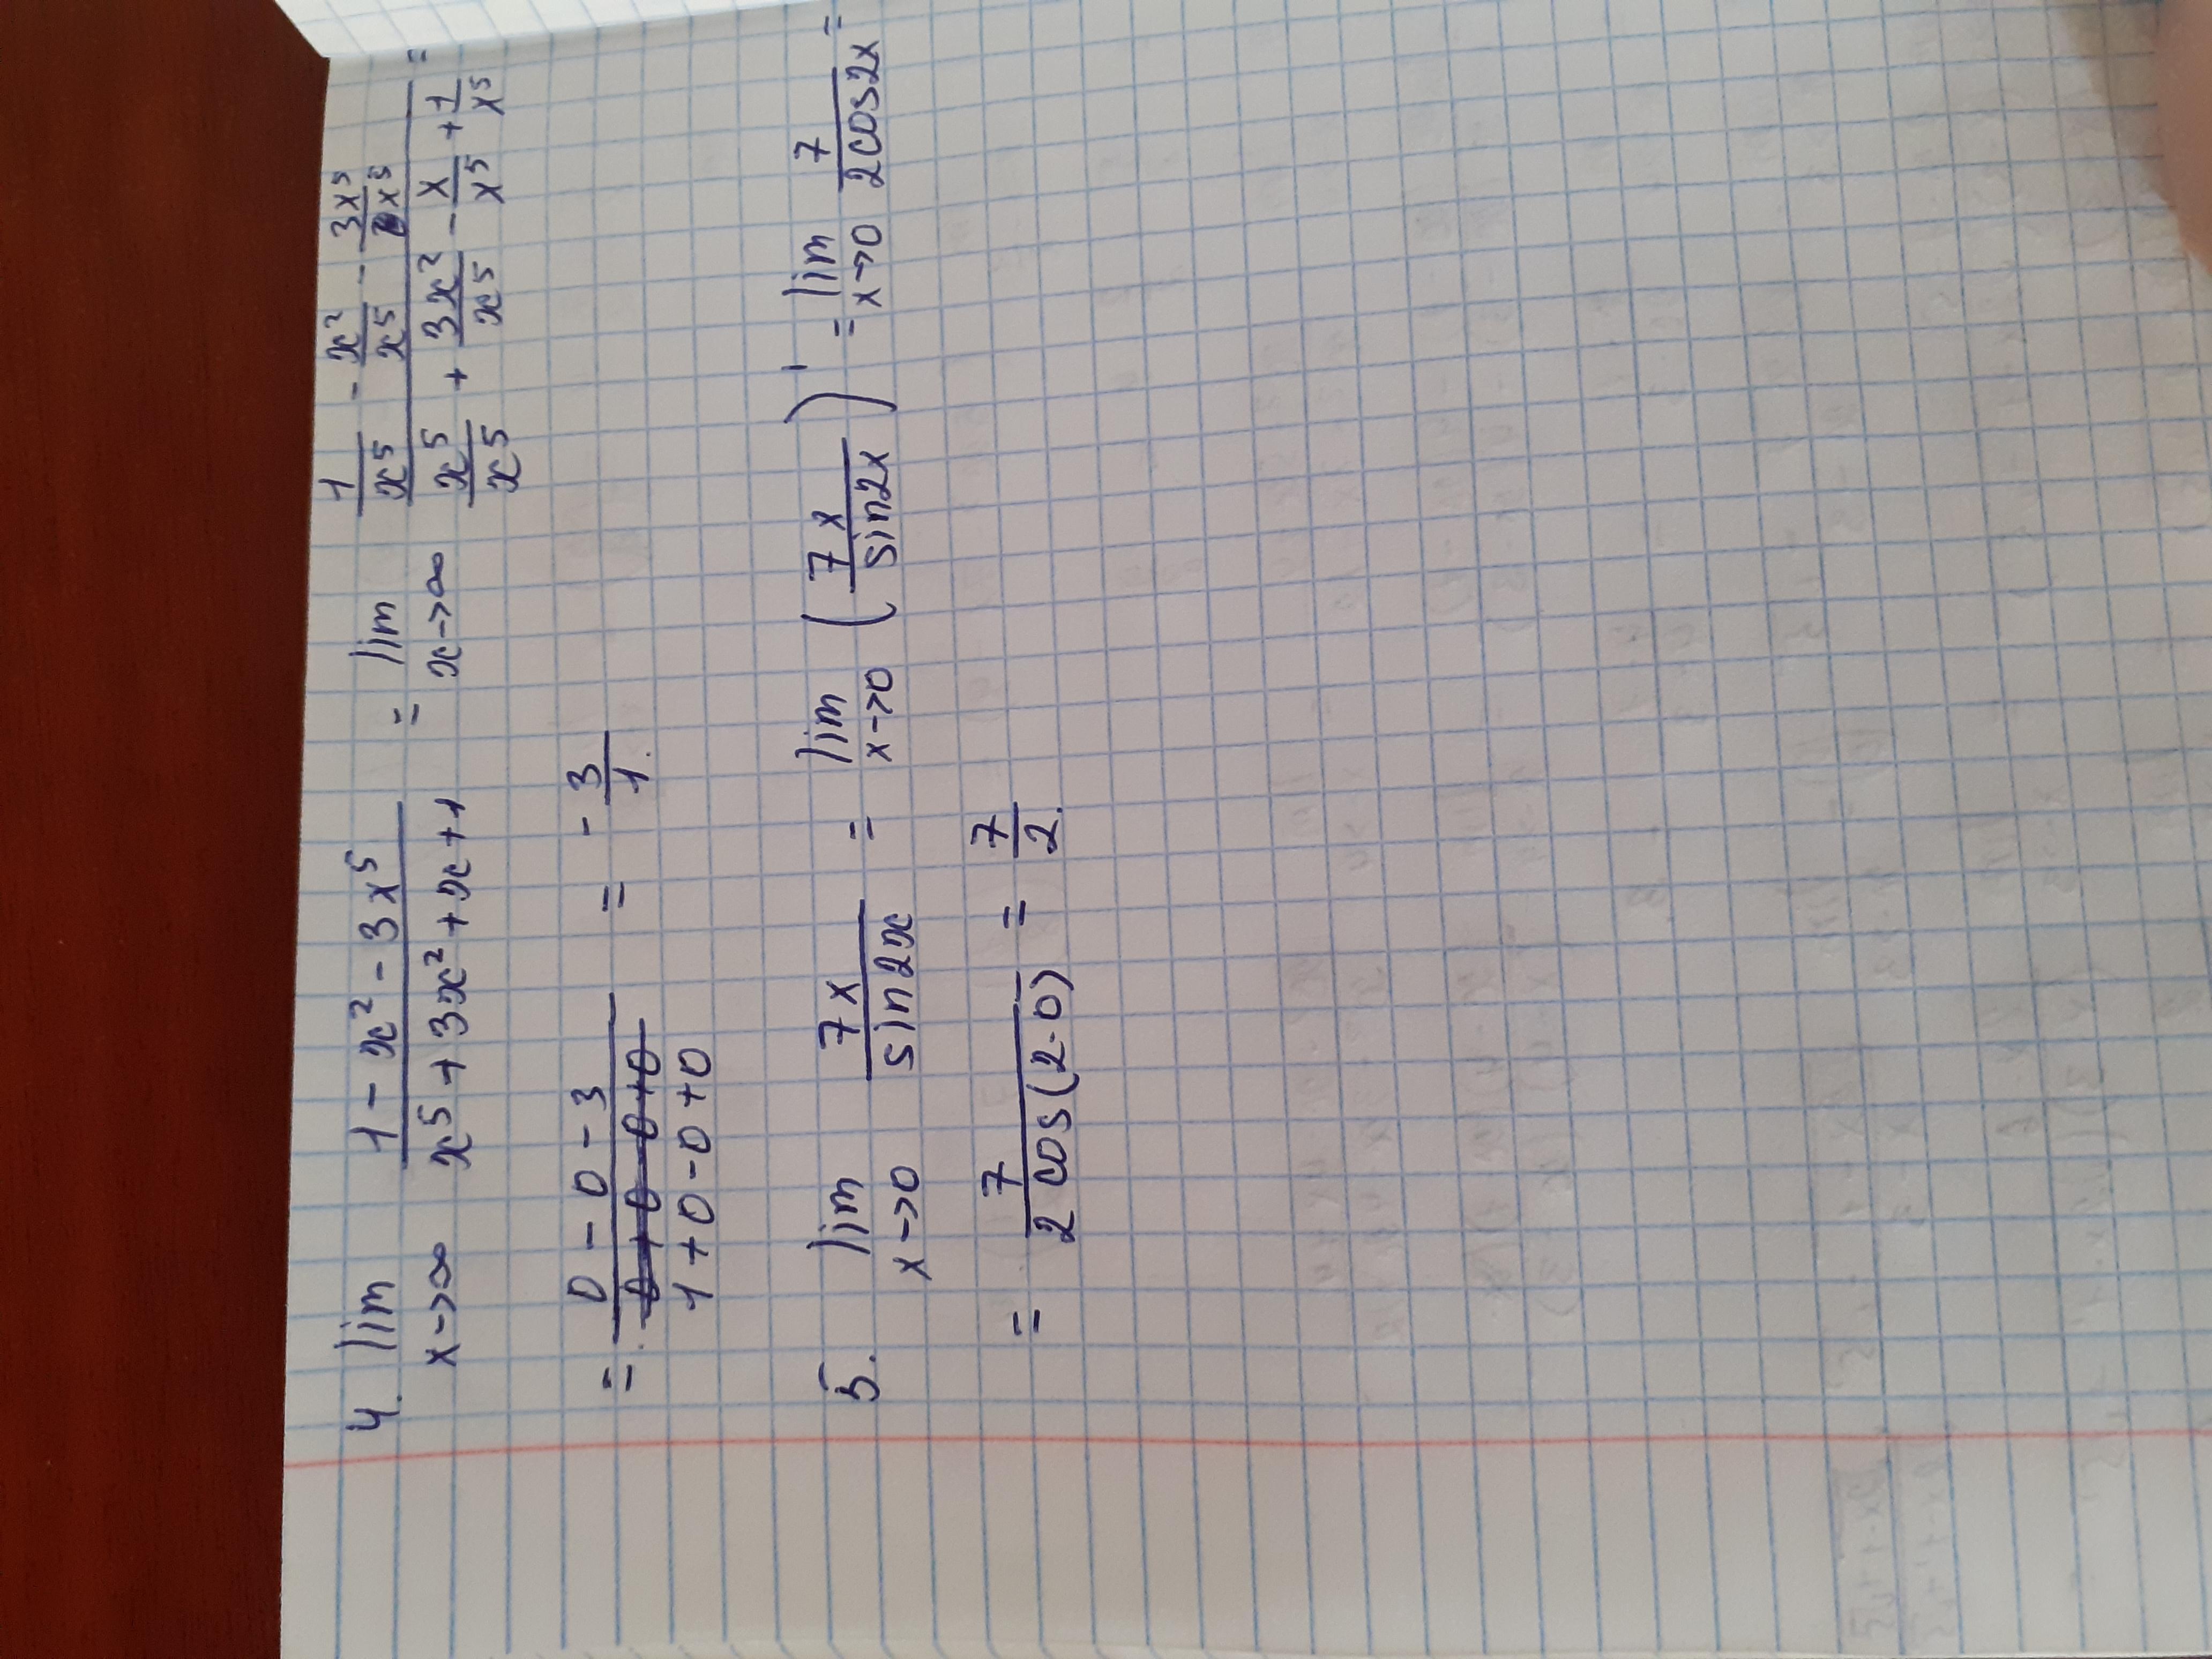 4. lim x→∞ (1 - x² - 3x⁵)/(x⁵ + 3x² + x + 1) = lim x→∞ (1/x⁵ - x²/x⁵ - 3x⁵/x⁵)/(x⁵/x⁵ + 3x²/x⁵ - x/x⁵ + 1/x⁵) =
= (0 - 0 - 3)/(1 + 0 - 0 + 0) = - 3/1.
5. lim x→0 7x/sin2x = lim x→0 (7x/sin2x)' = lim x→0 7/2cos2x =
= 7/2cos(2·0) = 7/2.